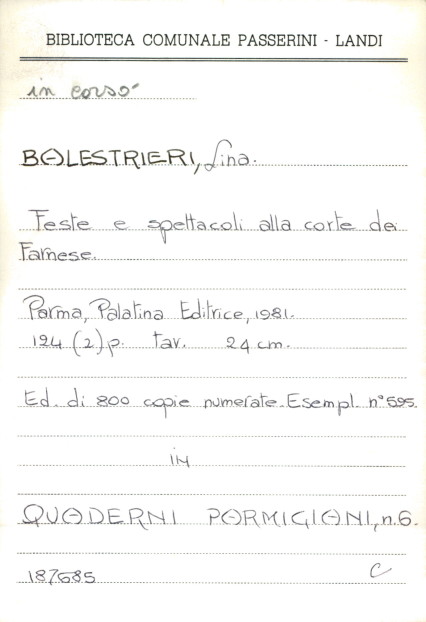 BIBLIOTECA COMUNALE PASSERINI - LANDI
in corso
BALESTRIERI, Lina.
Feste e spettacoli alla corte dei
Farnese.
Parma, Palatina Editrice, 1981.
124 (2) p. tav. 24 cm.
Ed. di 800 copie numerate. Esempl. n° 595.
in
QUADERNI PARMIGIANI, n. 6.
187685 C